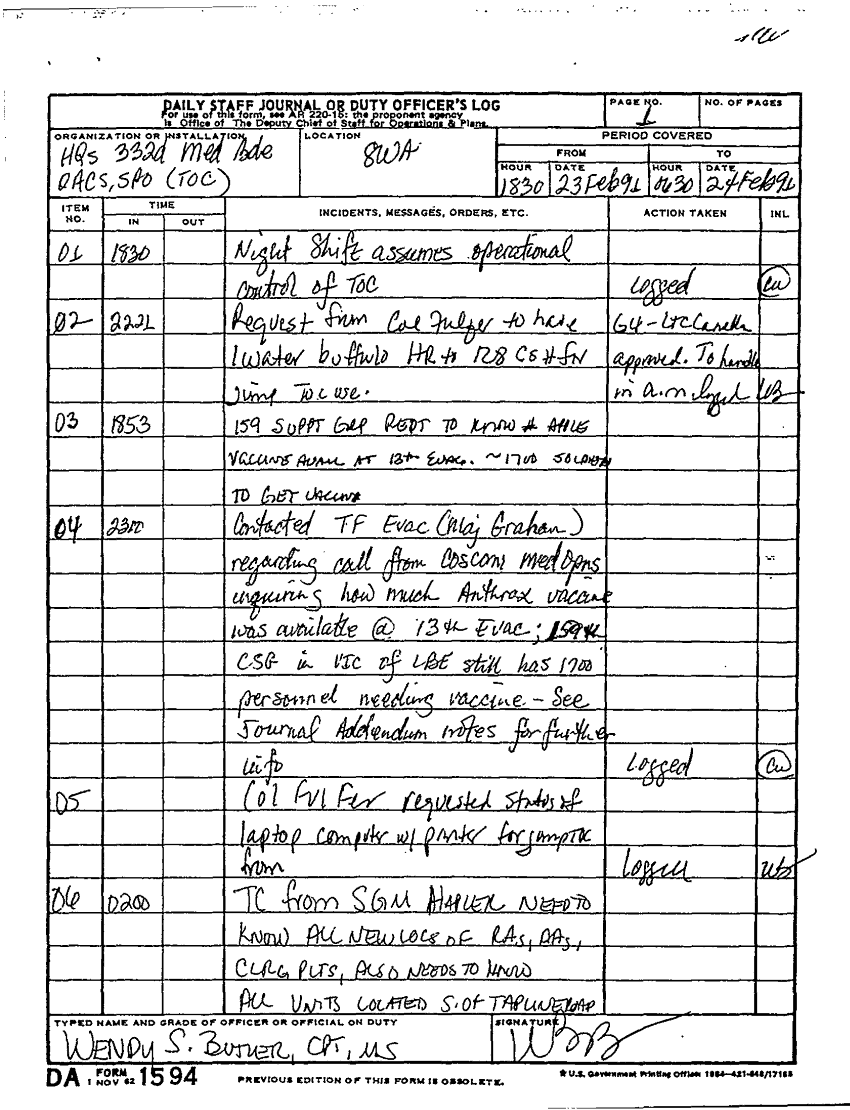 DAILY STAFF JOURNAL OR DUTY OFFICER'S LOG
For use of this form, see AR 220-15; the proponent agency
is Office of The Deputy Chief of Staff for Operations & Plans.
PAGE NO.
1
NO. OF PAGES
ORGANIZATION OR INSTALLATION
HQs 332d Med Bde
OACS, SPO (TOC)
LOCATION
SWA
PERIOD COVERED
FROM
TO
HOUR
1830
DATE
23 Feb 91
HOUR
0630
DATE
24 Feb 91
ITEM NO.
TIME
IN
OUT
INCIDENTS, MESSAGES, ORDERS, ETC.
ACTION TAKEN
INL
01 1830 Night Shift assumes operational
control of TOC Logged
02 2221 Request from Col Fulfer to have G4 - LTC
1 water buffalo to 128 CSH for approved. To handle
Jump TOC use. in a.m logged
03 1853 159 SUPPT GRP REQT TO KNOW #
VACCINE AVAIL AT 13th EVAC. ~1700 SOLDIERS
TO GET VACCINE
04 2300 Contacted TF Evac (Maj Graham)
regarding call from Coscom MedOpns
inquiring how much Anthrax vaccine
was available @ 13th Evac; 159th
CSG in VIC of LBE still has 1700
personnel needing vaccine - See
Journal Addendum notes for further
info Logged
05 Col Fulfer requested status of
laptop computer w/ printer for jump TOC
from Logged
06 0200 TC from SGM NEED TO
KNOW ALL NEW LOCS OF RAs, DAs,
CLRG PLTS, ALSO NEEDS TO KNOW
ALL UNITS LOCATED S. OF TAPLINE ROAD
TYPED NAME AND GRADE OF OFFICER OR OFFICIAL ON DUTY
WENDY S. BUTLER, CPT, MS
SIGNATURE
DA FORM 1 NOV 62 1594
PREVIOUS EDITION OF THIS FORM IS OBSOLETE.
★ U.S. Government Printing Office: 1984-421-646/17168